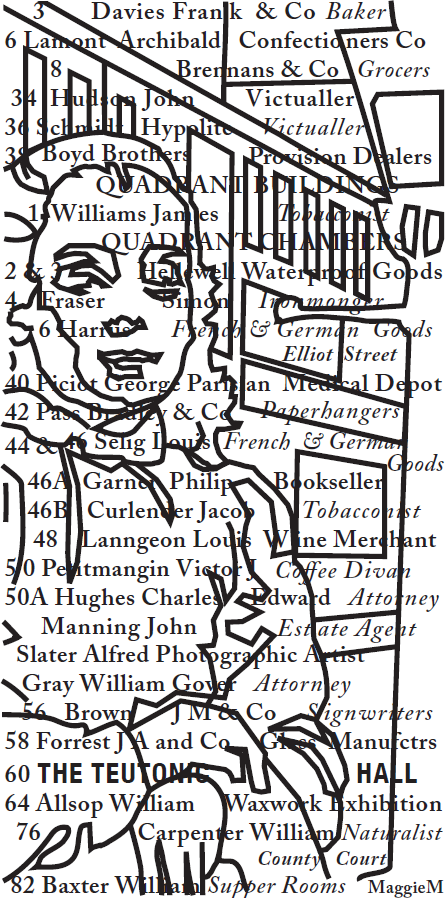 3 Davies Frank & Co Baker
6 Lamont Archibald Confectioners Co
8 Brennans & Co Grocers
34 Hudson John Victualler
36 Schmidt Hypolite Victualler
38 Boyd Brothers Provision Dealers
QUADRANT BUILDINGS
1 Williams James Tobacconist
QUADRANT CHAMBERS
2 & 3 Hellewell Waterproof Goods
4 Fraser Simon Ironmonger
6 Harrus French & German Goods
Elliot Street
40 Piciot George Parisian Medical Depot
42 Pass Bradley & Co Paperhangers
44 & 46 Selig Louis French & German
Goods
46A Garner Philip Bookseller
46B Curlender Jacob Tobacconist
48 Lanngeon Louis Wine Merchant
50 Petitmangin Victor J Coffee Divan
50A Hughes Charles Edward Attorney
Manning John Estate Agent
Slater Alfred Photographic Artist
Gray William Gover Attorney
56 Brown J M & Co Signwriters
58 Forrest J A and Co Glass Manufctrs
60 THE TEUTONIC HALL
64 Allsop William Waxwork Exhibition
76 Carpenter William Naturalist
County Court
82 Baxter William Supper Rooms MaggieM